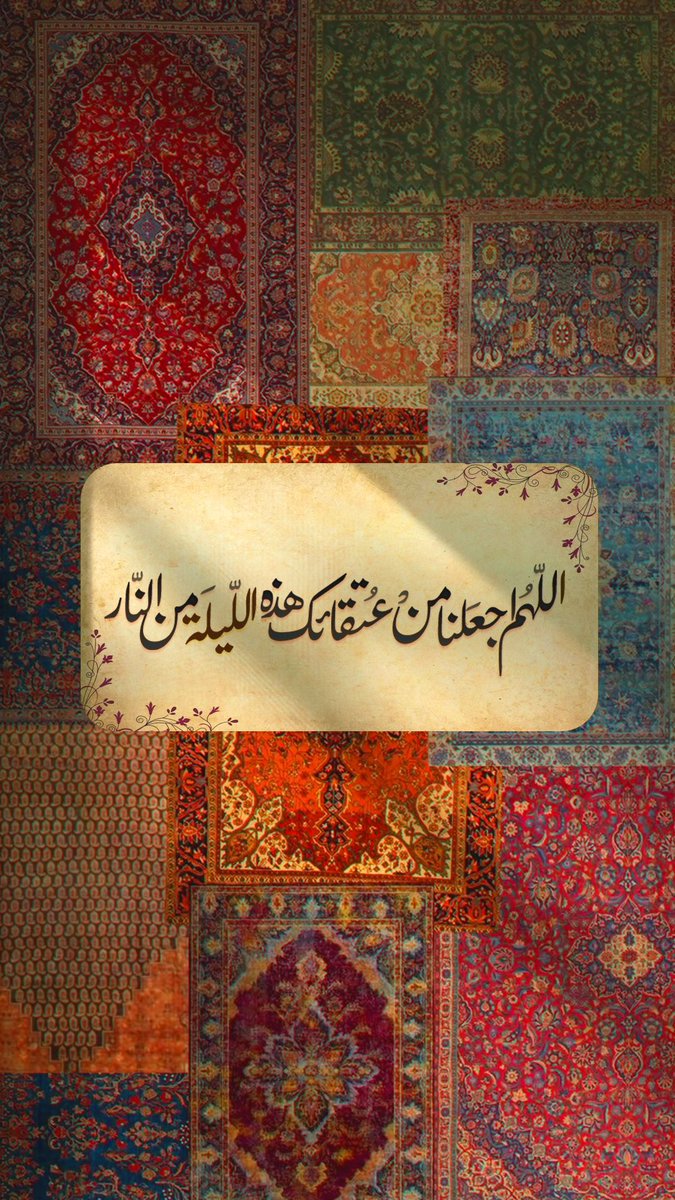 اللّهُم اجعَلنا من عُتقائك هذه اللّيلَة من النّار